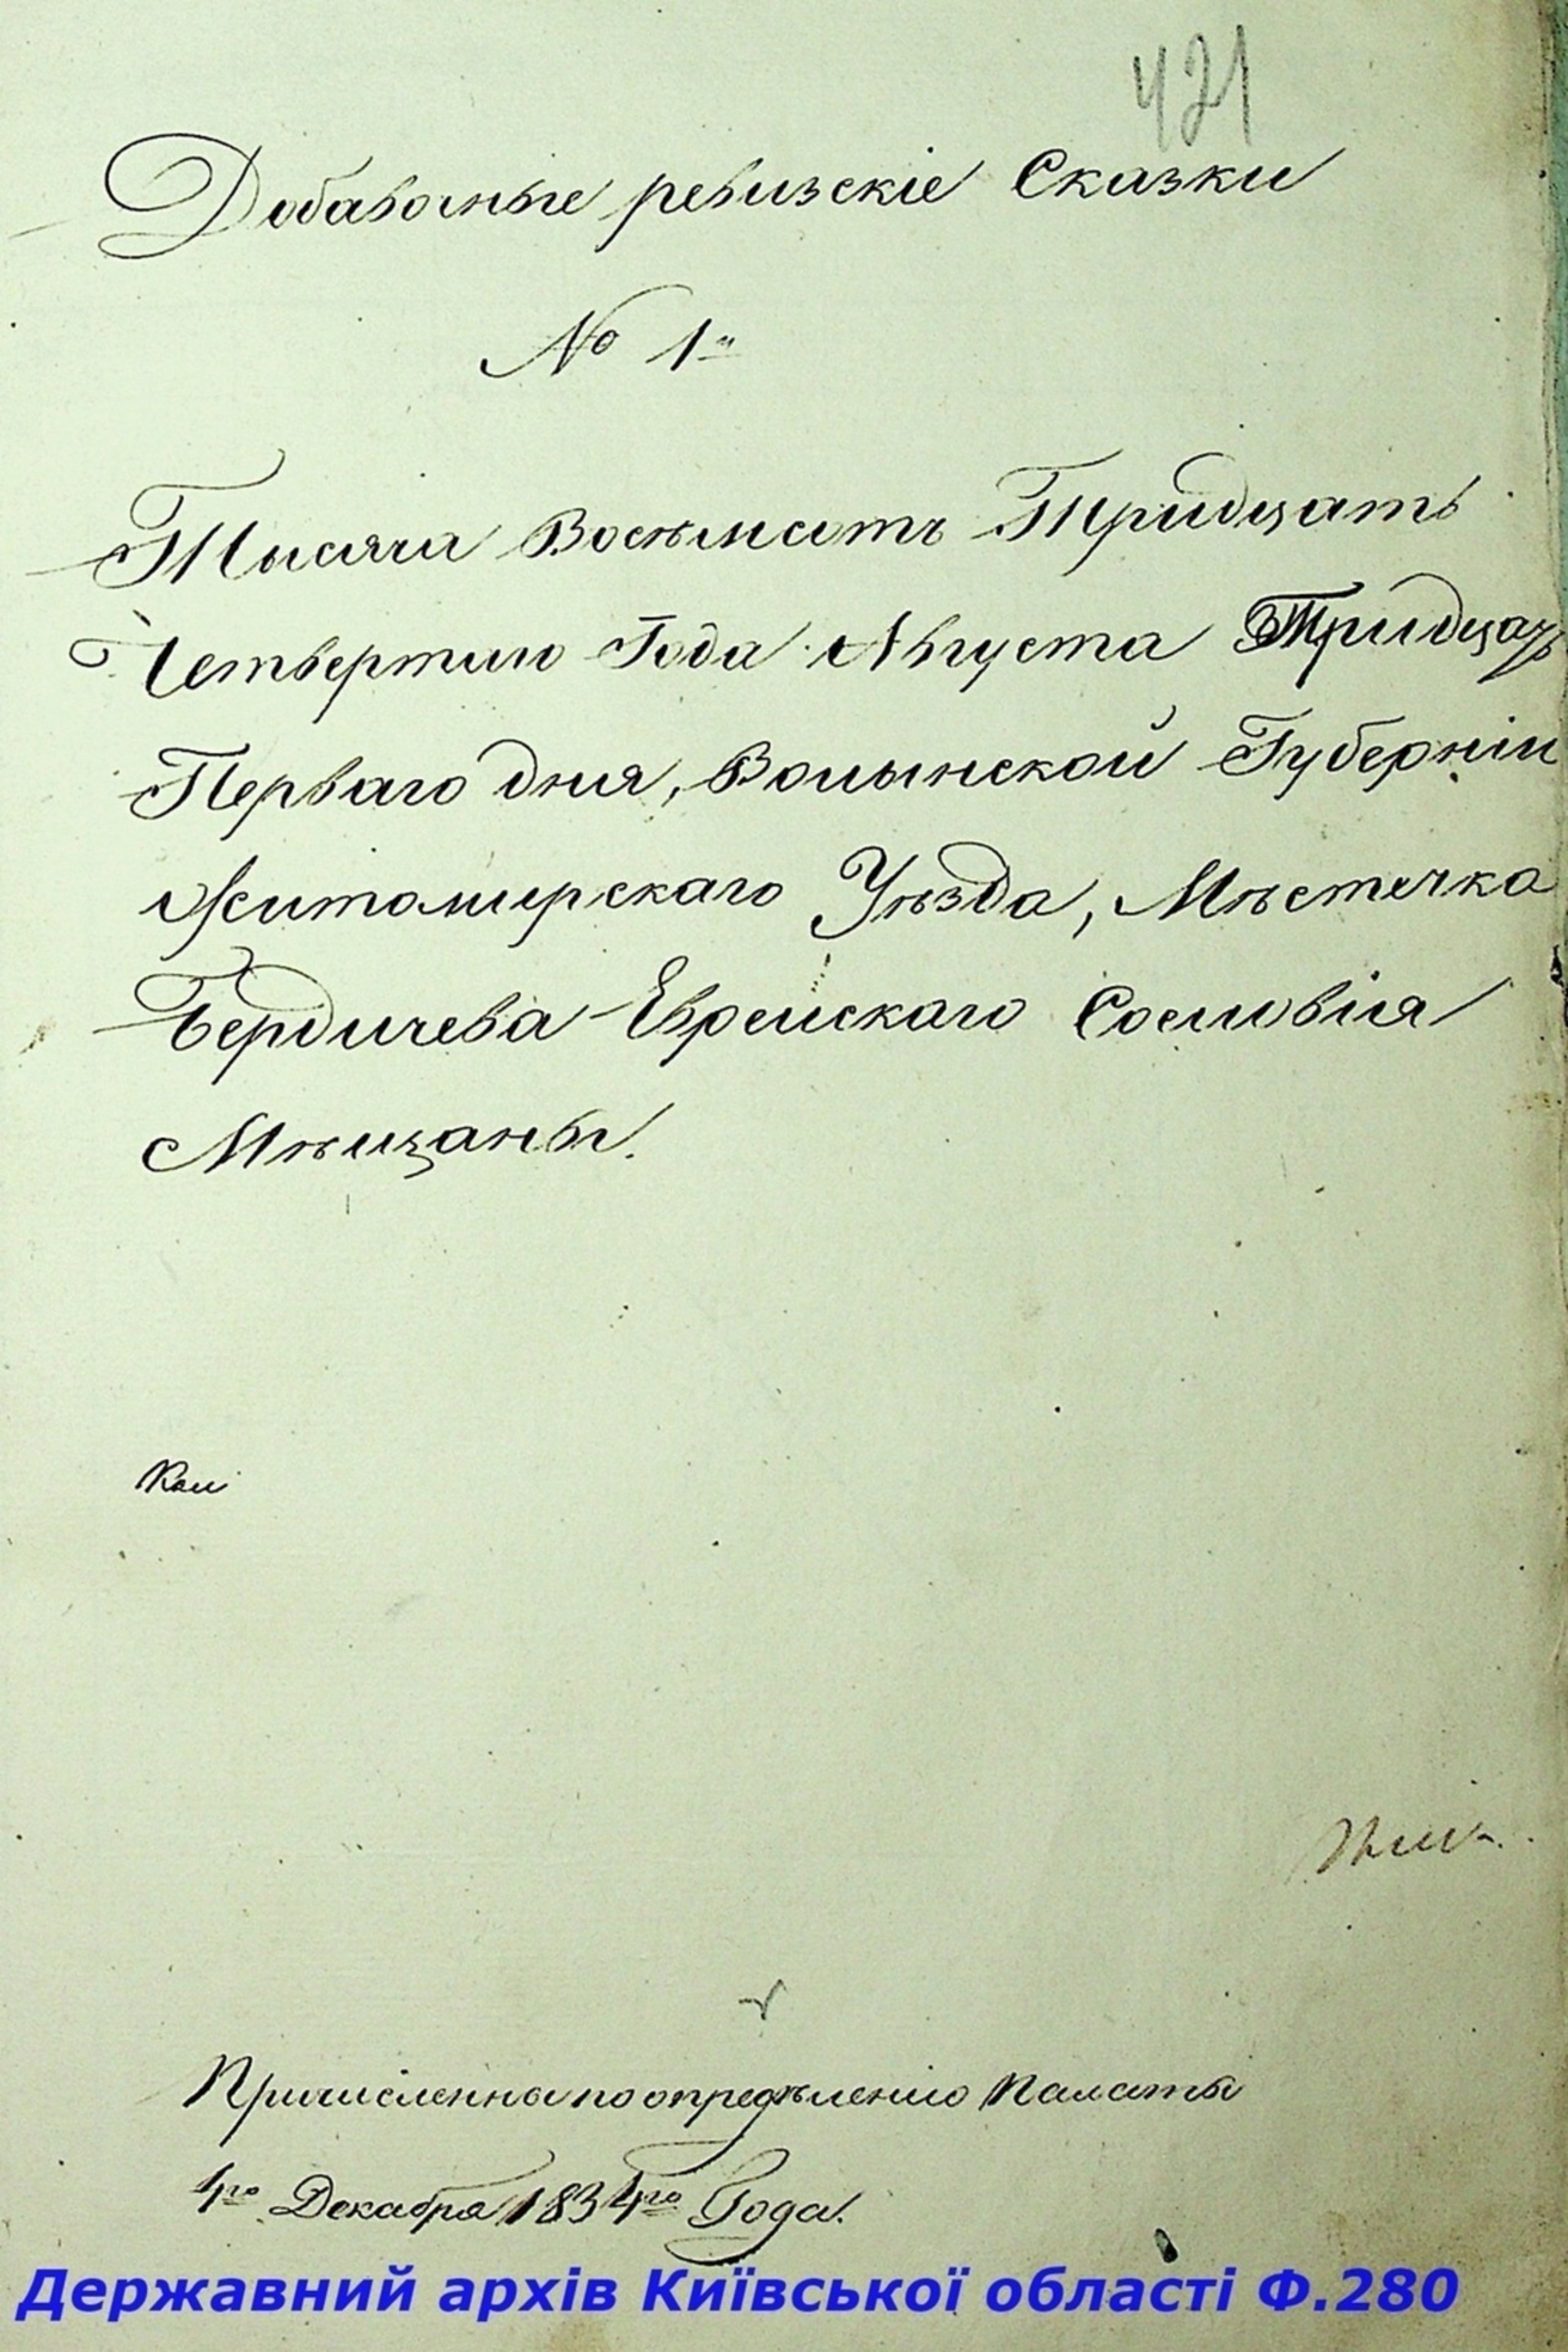 421
Добавочные ревизскіе Сказки
№ 1й
Тысяча Восѣмсотъ Тридцать
Четвертаго Года Августа Тридцать
Перваго дня, Волынской Губерніи
Житомирскаго Уѣзда, Мѣстечка
Бердичева Еврейскаго Сословія
Мѣщаны.
Причисленны по опредѣленію Палаты
4го Декабря 1834го Года.
Державний архів Київської області Ф.280